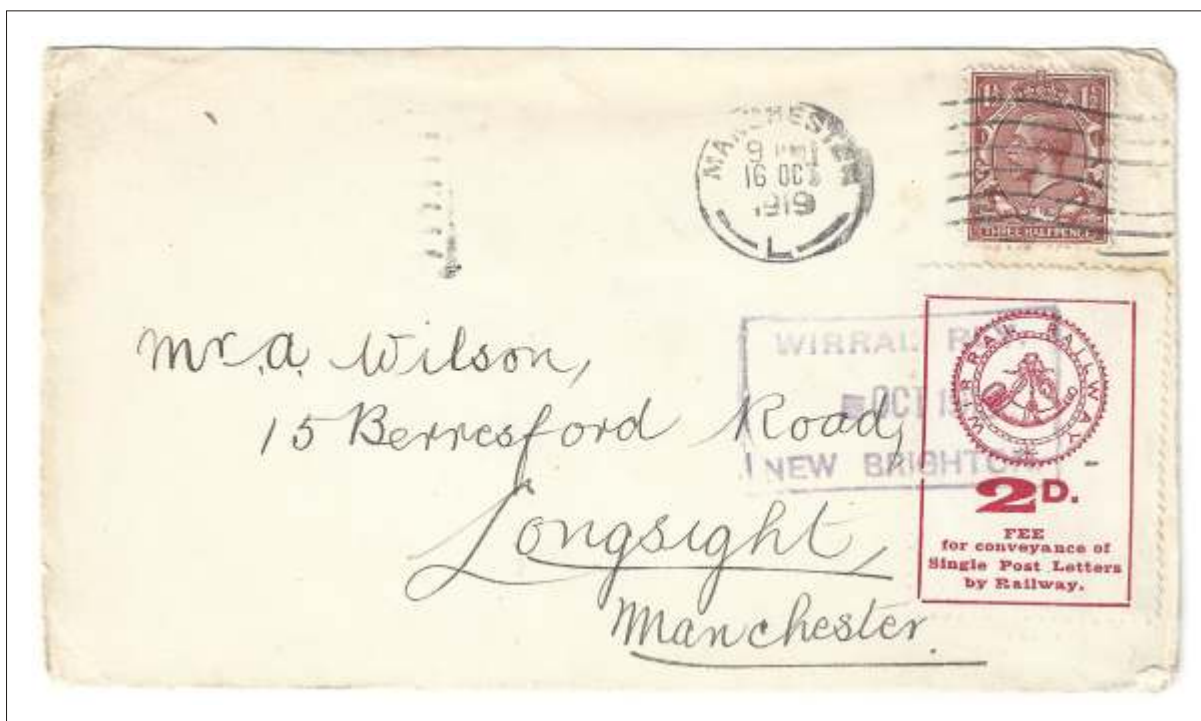 MANCHESTER
9 PM
16 OCT
1919
L
THREE HALFPENCE
WIRRAL RLY
OCT 19
NEW BRIGHTON
WIRRAL RAILWAY CO
2D.
FEE
for conveyance of
Single Post Letters
by Railway.
Mr. A. Wilson,
15 Berresford Road,
Longsight,
Manchester.